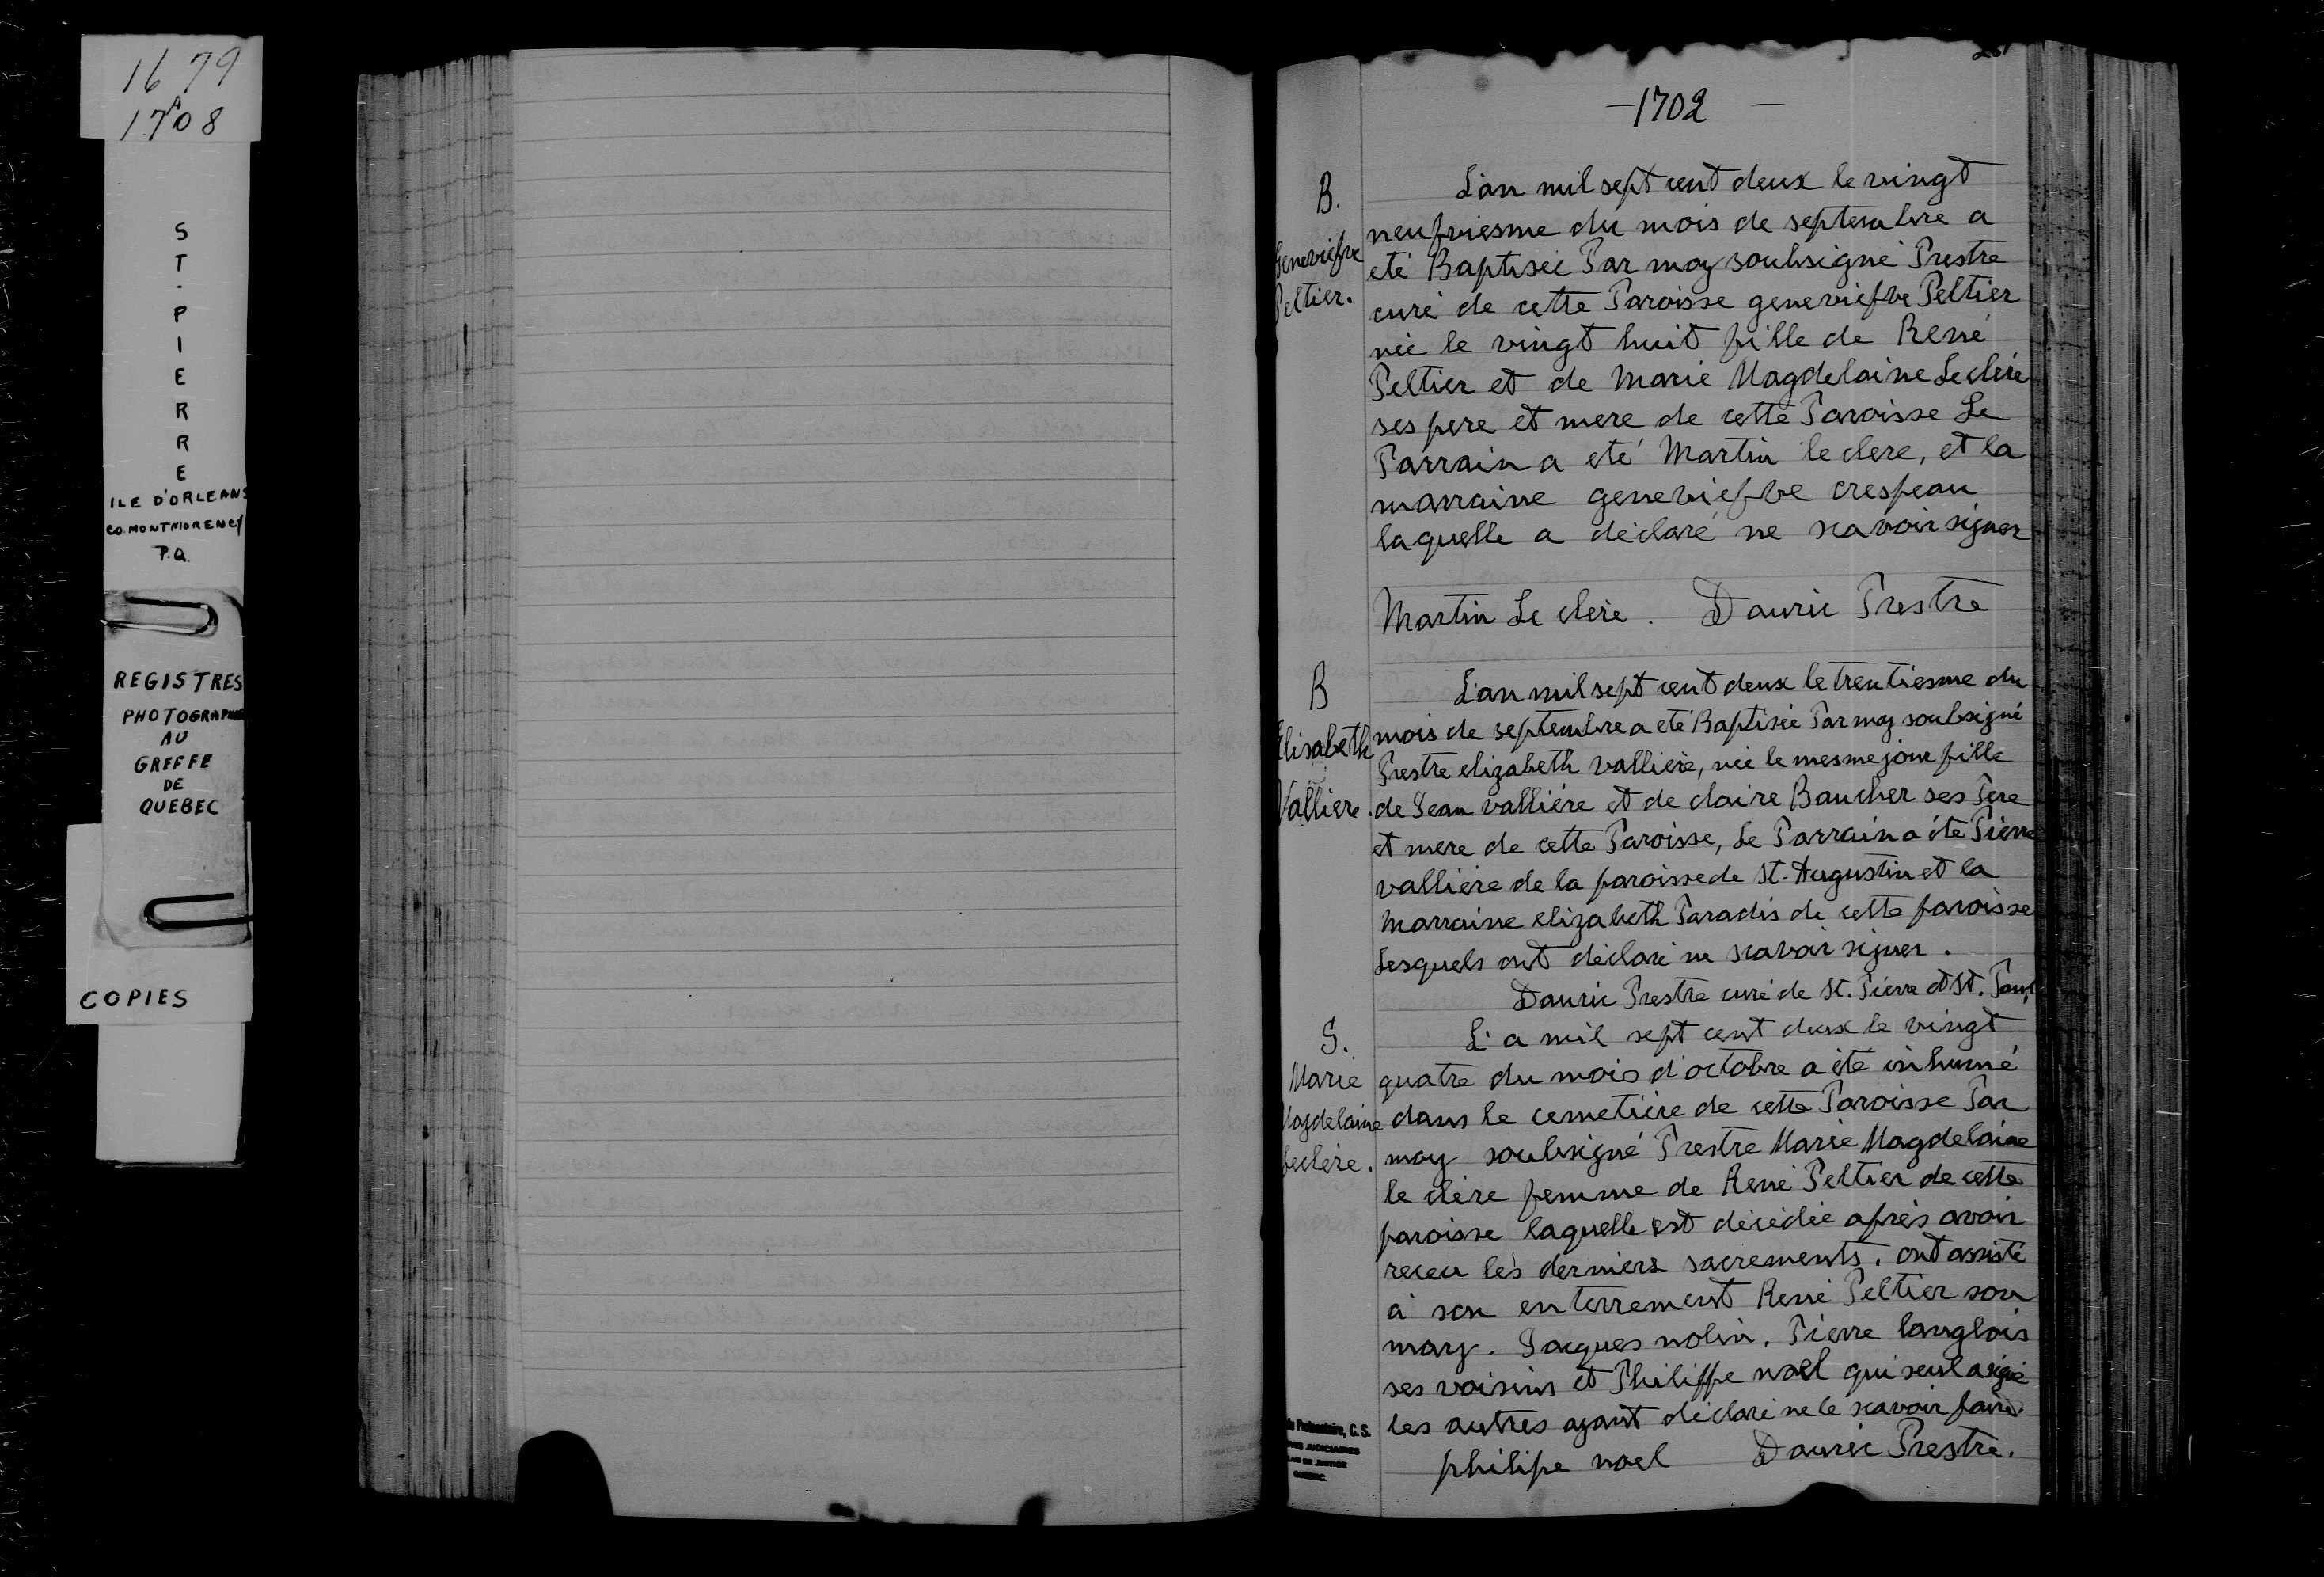 1679
A
1708
ST-PIERRE
ILE D'ORLEANS
CO. MONTMORENCY
P.Q.
REGISTRES
PHOTOGRAPHIÉ
AU
GREFFE
DE
QUEBEC
COPIES
—1702—
B.
Geneviefve
Peltier.
L'an mil sept cent deux le vingt
neufviesme du mois de septembre a
eté Baptisée Par moy soubsigné Prestre
curé de cette Paroisse geneviefve Peltier
née le vingt huit fille de René
Peltier et de Marie Magdelaine Leclere
ses pere et mere de cette Paroisse Le
Parrain a eté Martin leclere, et la
marraine geneviefve crespeau
laquelle a déclaré ne scavoir signer
Martin Le clere. Dauric Prestre
B
Elisabeth
Valliere.
L'an mil sept cent deux le trentiesme du
mois de septembre a eté Baptisée Par moy soubsigné
Prestre elizabeth vallière, née le mesme jour fille
de Jean vallière et de claire Baucher ses Pere
et mere de cette Paroisse, Le Parrain a été Pierre
vallière de la paroisse de St-Augustin et la
Marraine elizabeth Paradis de cette paroisse
Lesquels ont déclaré ne scavoir signer.
Dauric Prestre curé de St. Pierre et St. Paul
S.
Marie
Magdelaine
leclère.
L'a mil sept cent deux le vingt
quatre du mois d'octobre a été inhumé
dans le cemetière de cette Paroisse Par
moy soubsigné Prestre Marie Magdelaine
le clère femme de René Peltier de cette
paroisse laquelle est décédée après avoir
receu les derniers sacrements. ont assisté
à son enterrement René Peltier son
mary. Jacques nolin, Pierre langlois
ses voisins et Philippe noel qui seul a signé
les autres ayant déclaré ne le scavoir faire.
philipe noel Dauric Prestre.
C.S.
JUDICIAIRES
DE JUSTICE
QUEBEC.